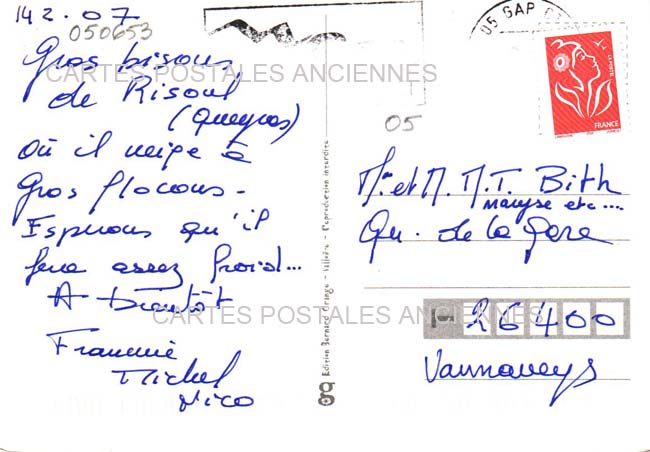 14 2. 07
050653
Gros bisous
de Risoul
(Queyras)
Où il neige à
Gros flocons -
Espérons qu'il
fera assez froid...
A Bientôt
Francine
Michel
Nico
CARTES POSTALES ANCIENNES
CARTES POSTALES ANCIENNES
05 GAP
05
LA POSTE
FRANCE
Mr et M. M.T. Bith
Maryse etc....
Qu. de la Gare
26400
Vaunaveys
Edition Bernard Grange - Valloire - Reproduction interdite
g